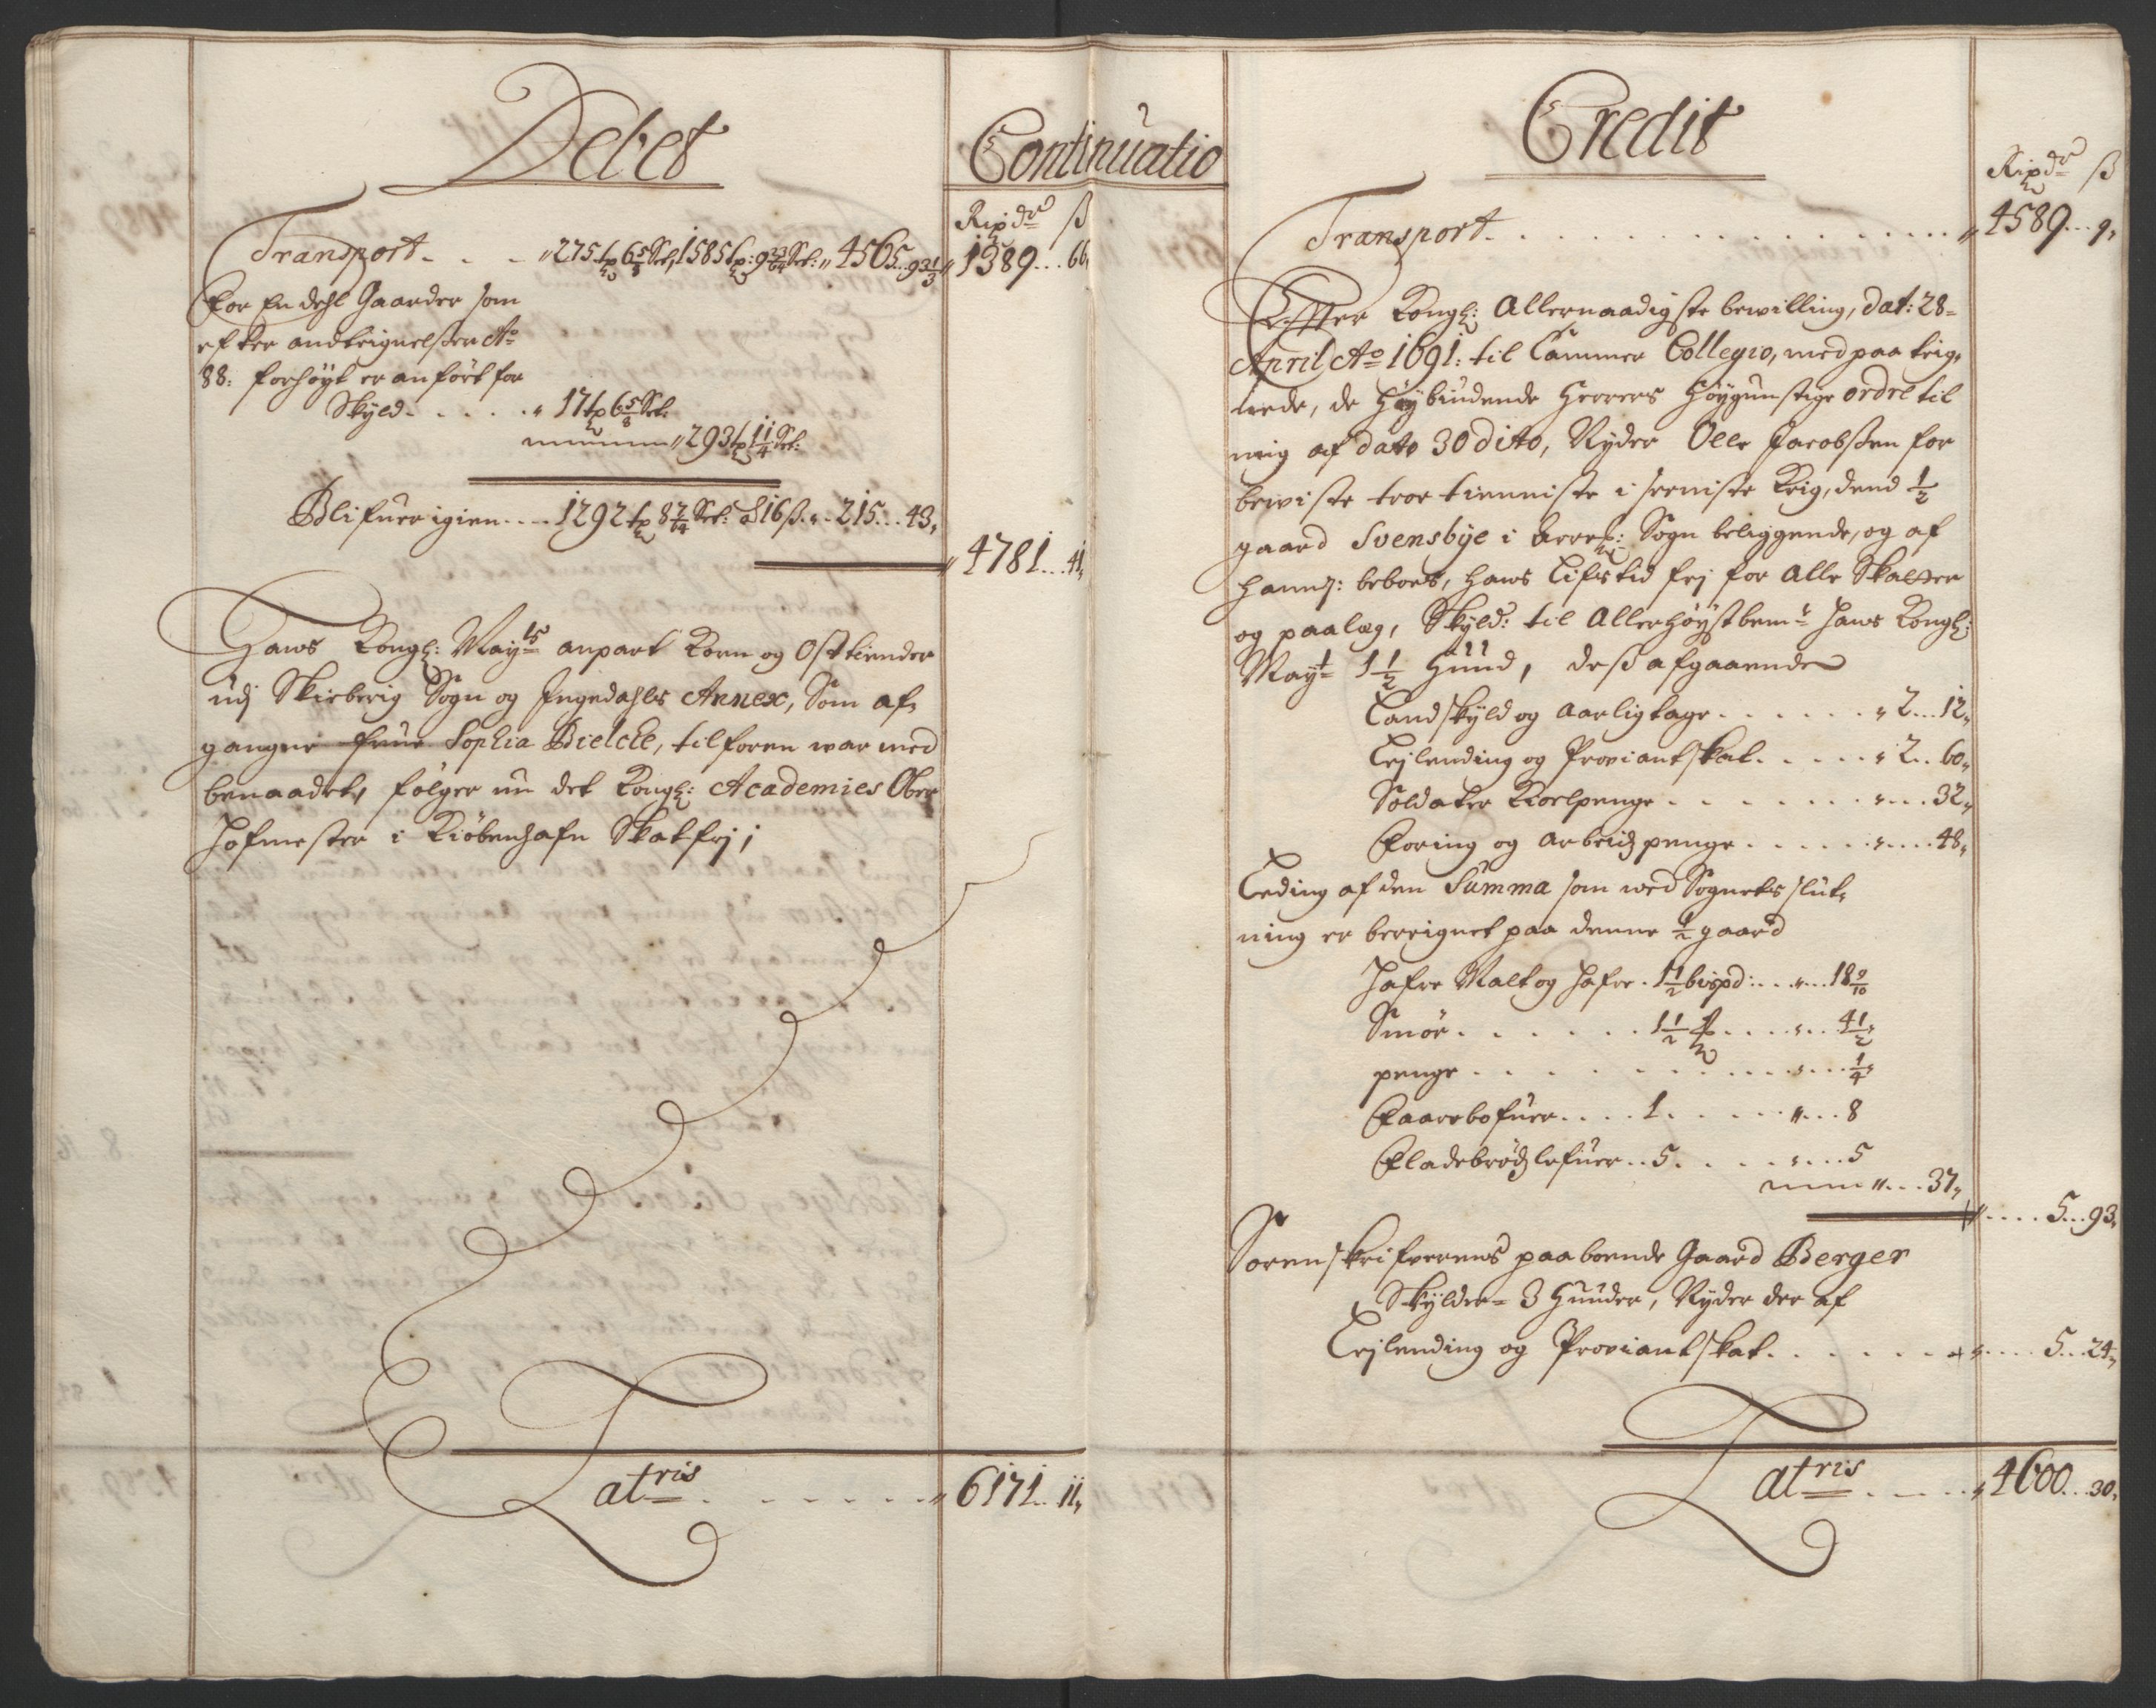 Debet
Continuatio
Rixdr ß
Transport. . . . 275 lp 6 5/8 Set, 1585 lp: 9 23/64 Set: 4565..93 1/3 1389...66
For En dehl Gaarder som
efter andteignelsen Ao
88: forhøyt er anført for
Skyld. . . . . 17 lp 6 5/8 Set:
293 lp 1 1/4 Set:
Blifuer igien.... 1292 lp 8 7/64 Set: à 16 ß. 215...43,
4781...41,
Hans Kongl: Mayts anpart Korn og Ost tiender
udj Skieberig Sogn og Ingedahls Annex, Som af,
gangne frue Sophia Bielche, tilforen war med
benaadet, følger nu det Kongl: Academies Ober
Hofmester i Kiöbenhafn Skatfrj;
atris. . . . . . . . 6171..11,
Credit
Rixdr ß
Transport. . . . . . . . . . . . . . . . 4589...9,
Effter Kongl: Allernaadigste bewilling, dat: 28=
April Ao 1691: til Cammer Collegio, med paa teig,
nede, de Høybiudende Herrers Høygunstige ordre til
mig af dato 30 dito, Nyder Olle Jacobßen for
bewiste troe tienniste i seeniste Krig, dend 1/2
gaard Svensbye i Sogn beliggende, og af
hannj: beboes, hans Lifstid frj for alle Skatter
og paalæg, Skyld: til Allerhøystbemte Hans Kongl:
Mayt 1 1/2 Huud, deß afgaaende
Landskyld og aarligtage . . . . . . 2...12,
Leylending og Proviantskat. . . . . 2...60,
Soldater Kioelpenge . . . . . . . ....32,
Foring og arbeidzpenge . . . . . . ....48,
Leding af den Summa som wed Sognets slut,
ning er bereignet paa denne 1/2 gaard
Hafre Malt og Hafre . 1 1/2 bispd: . . . . ...18 9/10
Smør. . . . . . . 1 1/2 . . . . ...4 1/2,
penge . . . . . . . . . . . . ...1/4,
Faarebofuer. . . . 1. . . . . . ...8
Fladebrødzlefuer..5. . . . . ....5
....37,
.....5...93,
Sorenskrifverens paaboende Gaard Berger
Skylder= 3 Huuder, Nyder der af
Leylending og Proviantskat. . . . . . . .....5...24,
atris. . . . . 4600...30,